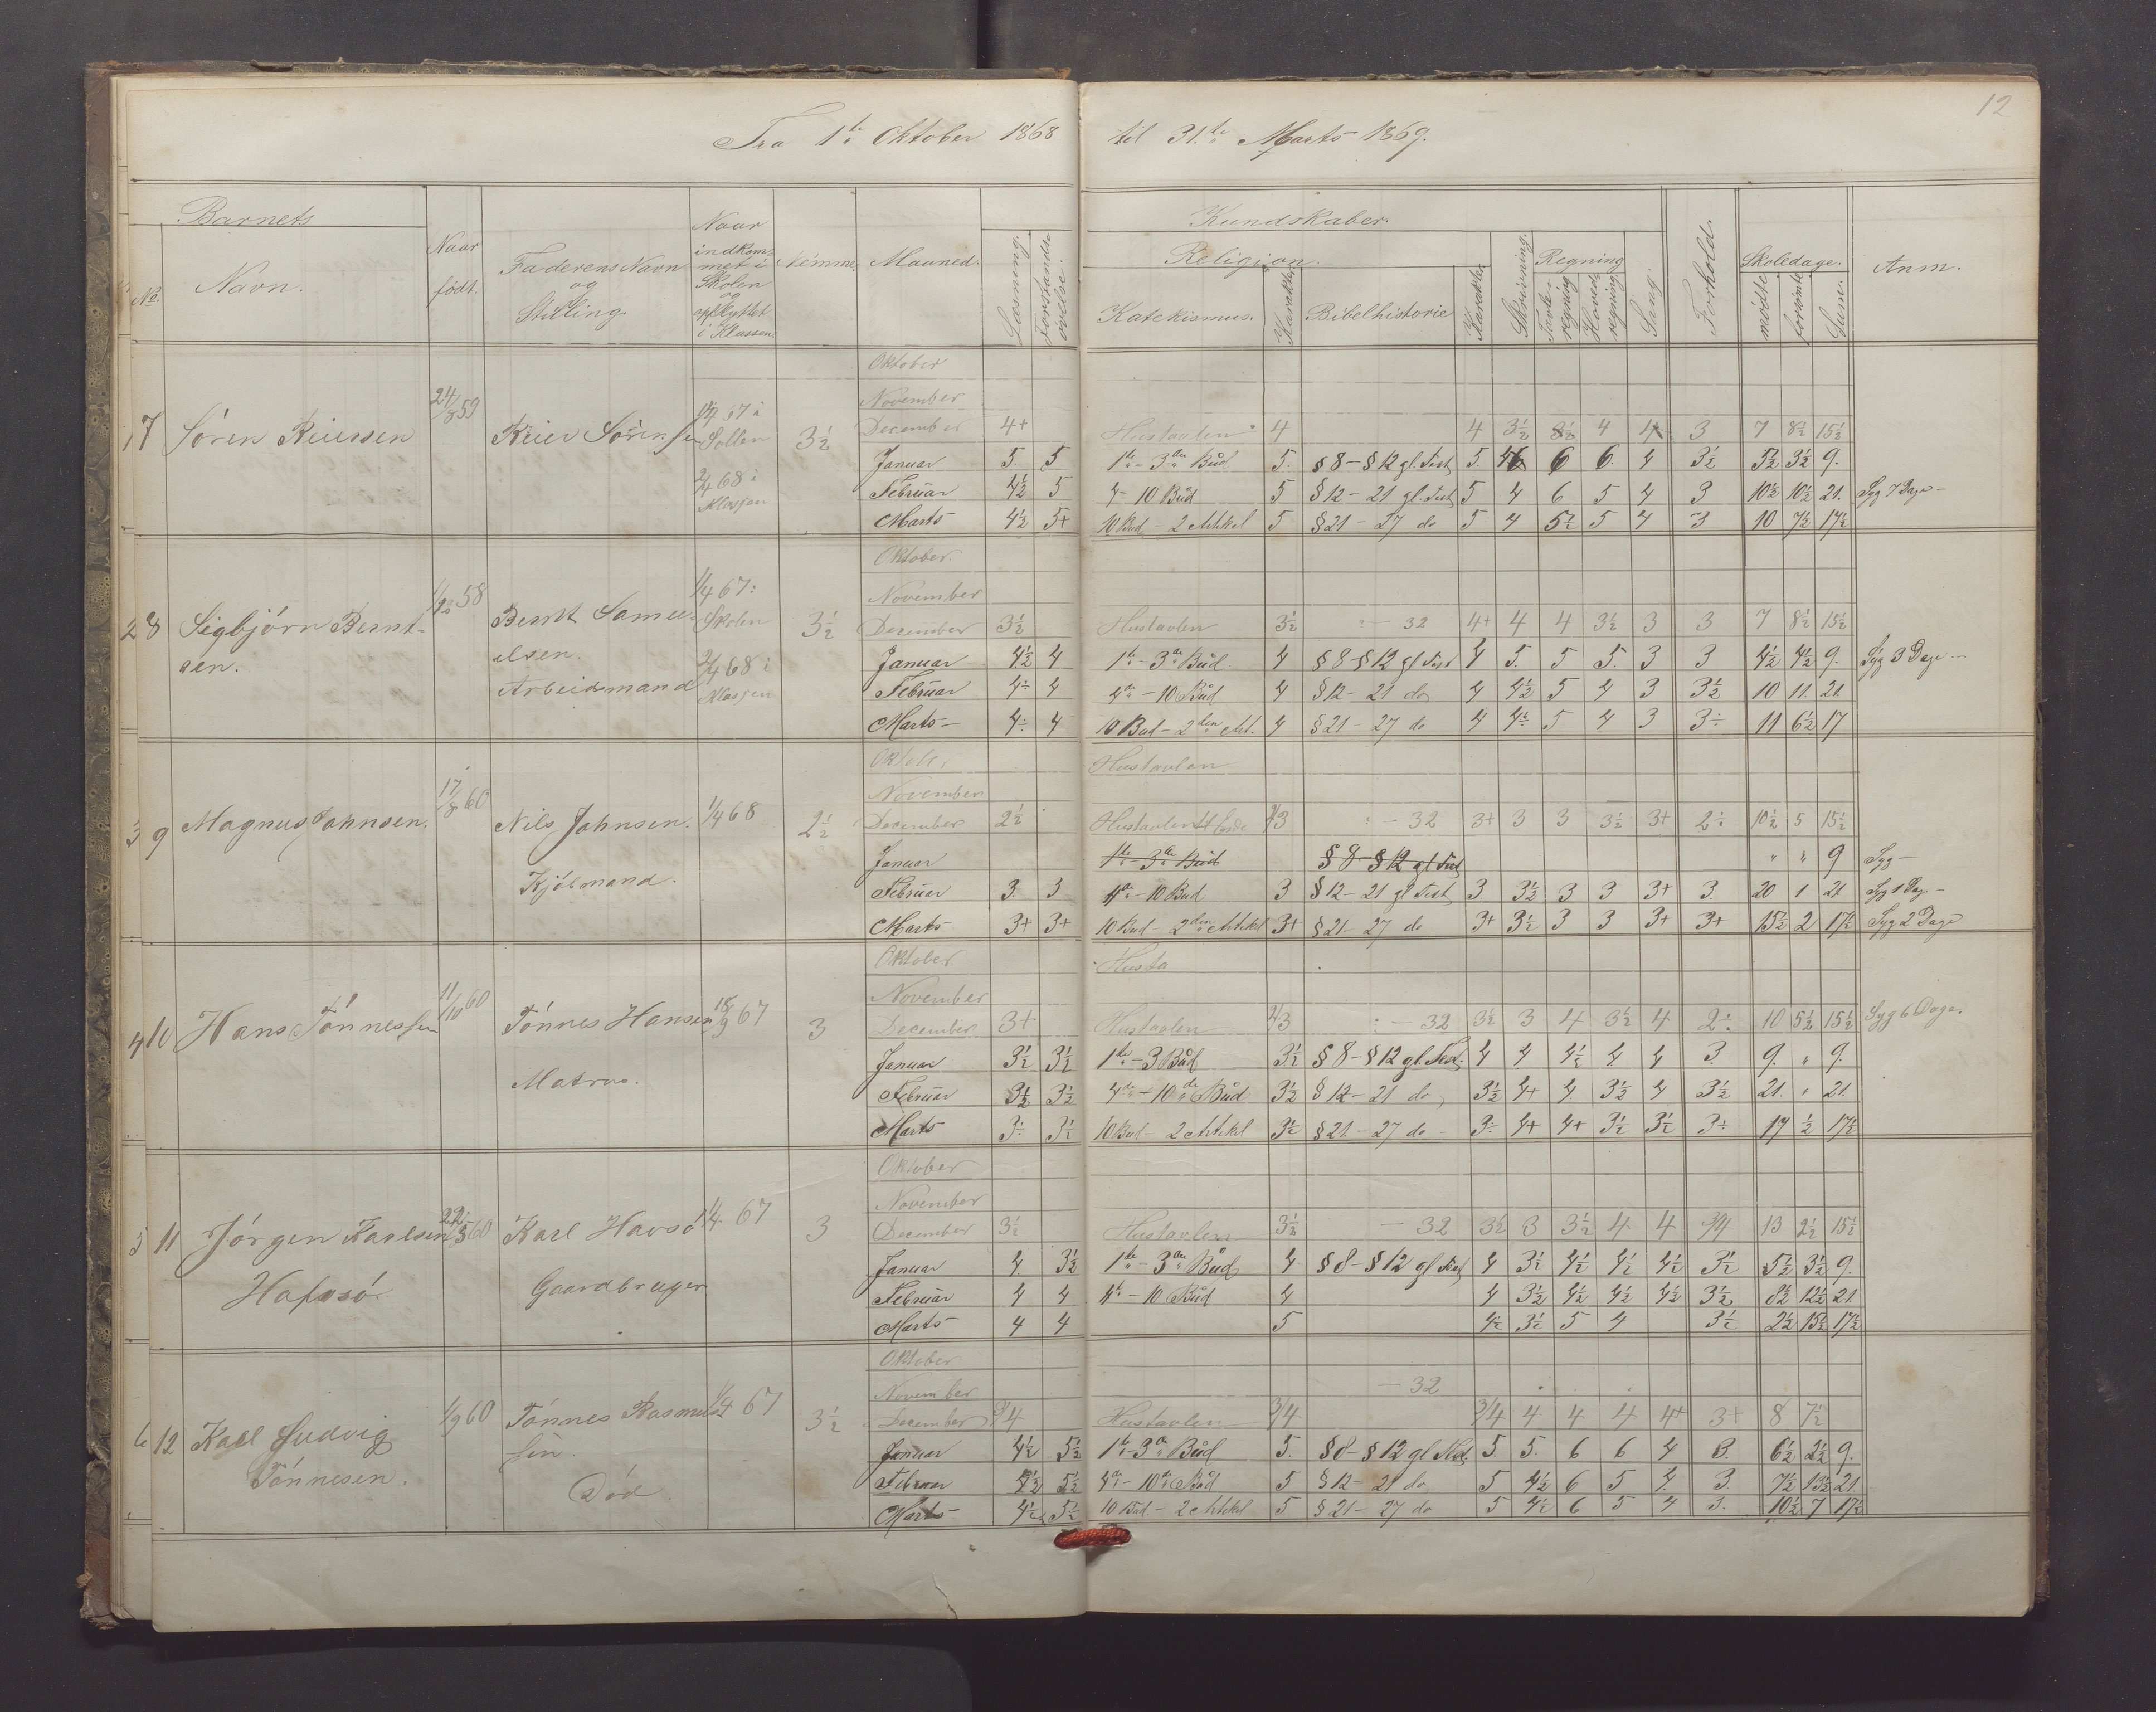 12
Fra 1ste Oktober 1868 til 31.te Marts 1869.
Barnets
No. Navn.
Naar født.
Faderens Navn og Stilling.
Naar indkommet i Skolen og opflyttet i Klassen.
Nemme.
Maaned.
Læsning.
Forstandsøvelse.
Kundskaber.
Religion.
Katekismus. Karakter. Bibelhistorie Karakter.
Skrivning.
Regning
Tavleregning Hovedregning
Sang.
Forhold.
Skoledage.
mødte forsømte Sum.
Anm.
17 Søren Reiersen 24/8 59 Reier Sørensen 3½
Oktober
November
December 4+ Hustavlen 4 4 3½ 4 3 7 8½ 15½
Januar 5. 5 1te-3die Bud 5. §8-§12 gl. Test 5. 6 6. 4 3½ 5½ 3½ 9.
Februar 4½ 5 4-10 Bud 5 §12-21 gl. Test 5 4 6 5 4 3 10½ 10½ 21. Syg 7 Dage-
Marts 4½ 5+ 10 Bud-2 Artikel 5 §21-27 do 5 4 5½ 5 4 3 10 7½ 17½
28 Sigbjørn Berntsen. 58 Bernt Samuelsen. Arbeidsmand 1/4 67 i Skolen 2/4 68 i Klassen 3½
Oktober.
November
December 3½ Hustavlen 3½ -32 4+ 4 4 3½ 3 3 7 8½ 15½
Januar 4½ 4 1te-3die Bud 4 §8-§12 gl Test 4 5. 5 5. 3 3 4½ 4½ 9. Syg 3 Dage-
Februar 4÷ 4 4de-10 Bud 4 §12-21 do 4 4½ 5 4 3 3½ 10 11. 21.
Marts- 4÷ 4 10 Bud-2den Art. 4 §21-27 do 4 4÷ 5 4 3 3÷ 11 6½ 17
39 Magnus Johnsen. 17/8 60 Nils Johnsen. Kjøbmand. 1/4 68 2½
Oktober Hustavlen
November
December 2½ Hustavlen 3 -32 3+ 3 3 3½ 3+ 2÷ 10½ 5 15½
Januar 1te-3die Bud §8-§12 gl Test " " 9 Syg-
Februar 3. 3 4de-10 Bud 3 §12-21 gl Test 3 3½ 3 3 3+ 3. 20 1 21 Syg 1 Dag-
Marts 3+ 3+ 10 Bud-2den Artikel 3+ §21-27 do 3+ 3½ 3 3 3+ 3+ 15½ 2 17½ Syg 2 Dage
410 Hans Tønnessen 11/10 60 Tønnes Hansen Matros. 18/9 67 3
Oktober Husta
November
December 3+ Hustavlen 3 -32 3½ 3 4 3½ 4 2÷ 10 5½ 15½ Syg 6 Dage.
Januar 3½ 3½ 1te-3 Bud 3½ §8-§12 gl. Test. 4 4 4½ 4 4 3. 9. " 9.
Februar 3½ 3½ 4de-10de Bud 3½ §12-21 do, 3½ 4+ 4 3½ 4 3½ 21. " 21.
Marts 3÷ 3½ 10 Bud-2 Artikel 3½ §21-27 do- 3÷ 4+ 4+ 3½ 3½ 3÷ 17 ½ 17½
5 11 Jørgen Karlsen Hafsø 60 Karl Havsø Gaardbruger 1/4 67 3
Oktober
November
December 3½ Hustavlen 3½ -32 3½ 3 3½ 4 4 3/4 13 2½ 15½
Januar 4 3½ 1te-3die Bud 4 §8-§12 gl Test 4 3½ 4½ 4½ 4½ 3½ 5½ 3½ 9.
Februar 4 4 4de-10 Bud 4 4 3½ 4½ 4½ 4½ 3½ 8½ 12½ 21
Marts 4 4 5 4½ 3½ 5 4 3½ 2½ 15½ 17½
6 12 Karl Ludvig Tønnesen. 1/9 60 Tønnes Rasmussen. Død. 1/4 67 3½
Oktober
November -32
December 3/4 Hustavlen 3/4 3/4 4 4 4 4+ 3+ 8 7½
Januar 4½ 5½ 1te-3die Bud 5. §8-§12 gl Test. 5 5. 6 6 4 3. 6½ 2½ 9.
Februar 4½ 5½ 4de-10de Bud 5 §12-21 do 5 4½ 6 5 4 3. 7½ 13½ 21
Marts- 4½ 5½ 10 Bud-2 Artikel 5 §21-27 do 5 4½ 6 5 4 3. 10½ 7 17½